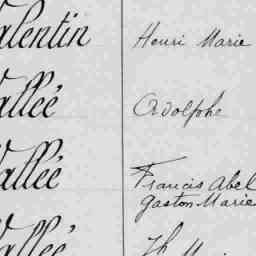 Valentin Henri Marie
Vallée Adolphe
Vallée Francis Abel
Gaston Marie
Vallée